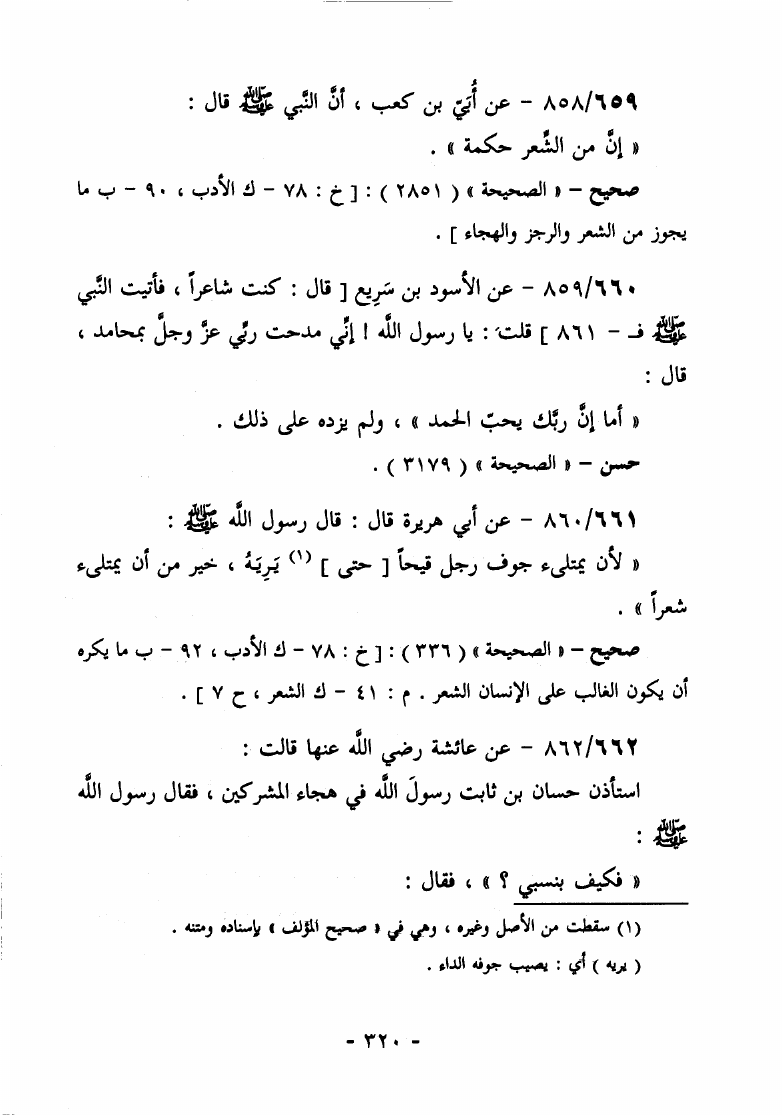 ٨٥٨/٦٥٩ – عن أُبَيّ بن كعب ، أنَّ النَّبي ﷺ قال :
« إنَّ من الشِّعر حكمة » .
صحيح – « الصحيحة » ( ٢٨٥١ ) : [ خ : ٧٨ – ك الأدب ، ٩٠ – ب ما
يجوز من الشعر والرجز والهجاء ] .
٨٥٩/٦٦٠ – عن الأسود بن سَرِيع [ قال : كنت شاعراً ، فأتيت النَّبي
ﷺ فـ – ٨٦١ ] قلت : يا رسول اللَّه ! إنِّي مدحت ربِّي عزَّ وجلَّ بمحامد ،
قال :
« أما إنَّ ربَّك يحبّ الحمد » ، ولم يزده على ذلك .
حسن – « الصحيحة » ( ٣١٧٩ ) .
٨٦٠/٦٦١ – عن أبي هريرة قال : قال رسول اللَّه ﷺ :
« لأن يمتلىء جوف رجل قيحاً [ حتى ] (١) يَرِيَهُ ، خير من أن يمتلىء
شعراً » .
صحيح – « الصحيحة » ( ٣٣٦ ) : [ خ : ٧٨ – ك الأدب ، ٩٢ – ب ما يكره
أن يكون الغالب على الإنسان الشعر . م : ٤١ – ك الشعر ، ح ٧ ] .
٨٦٢/٦٦٢ – عن عائشة رضي اللَّه عنها قالت :
استأذن حسان بن ثابت رسولَ اللَّه في هجاء المشركين ، فقال رسول اللَّه
ﷺ :
« فكيف بنسبي ؟ » ، فقال :
(١) سقطت من الأصل وغيره ، وهي في « صحيح المؤلف » بإسناده ومتنه .
( يريه ) أي : يصيب جوفه الداء .
- ٣٢٠ -